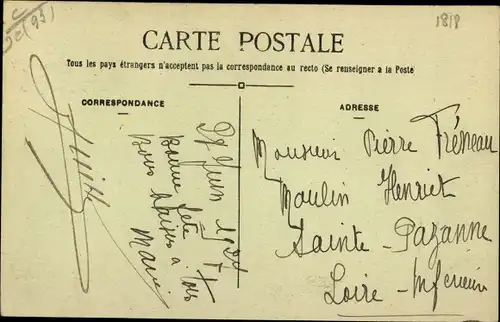 CARTE POSTALE
Tous les pays étrangers n'acceptent pas la correspondance au recto (Se renseigner a la Poste
CORRESPONDANCE
ADRESSE
27 Juin 19
Bonne fête
Bons baisers à tous
Marie
Monsieur Pierre Fréneau
Moulin Henriet
Sainte-Pazanne
Loire-Inférieure
1818